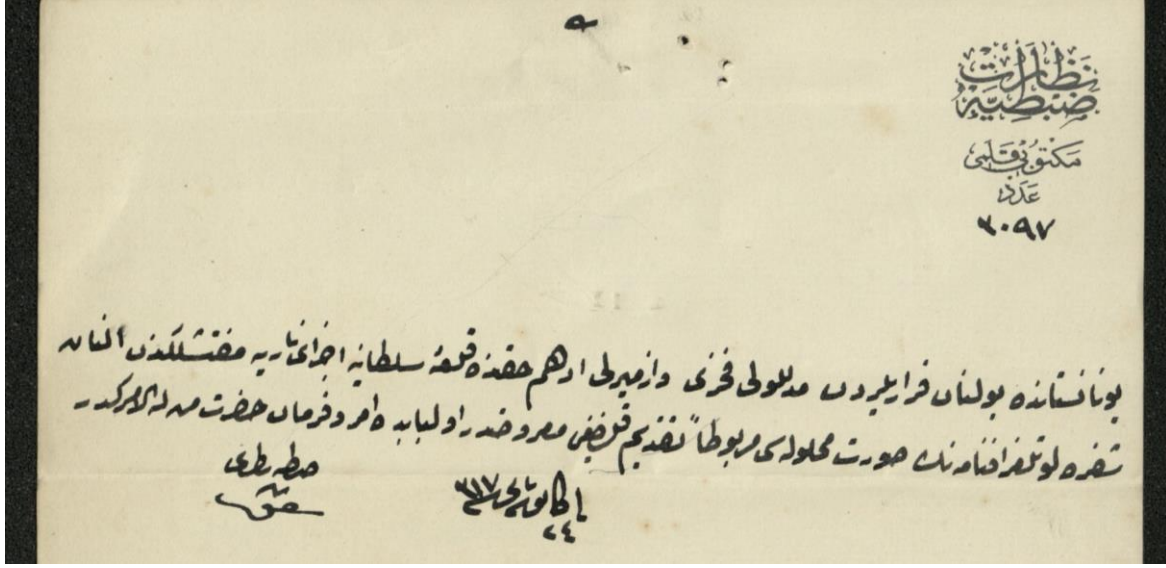 نظارت
ضبطیه
مکتوبی قلمی
عدد
٣٠٩٧
یونانستانده بولنان فراریلردن مدللولی فخری وازمیرلی ادهم حقنده قلعۀ سلطانیه اجراآتاریه مفتشلکندن النان
شفره لو تلغرافنامه نك صورت محلوله سی مربوطاً تقدیم قلنمغین معروضدر اولبابده امر وفرمان حضرت من له الامرکدر
ضبطیه ناظری
٣١٧
٢٤